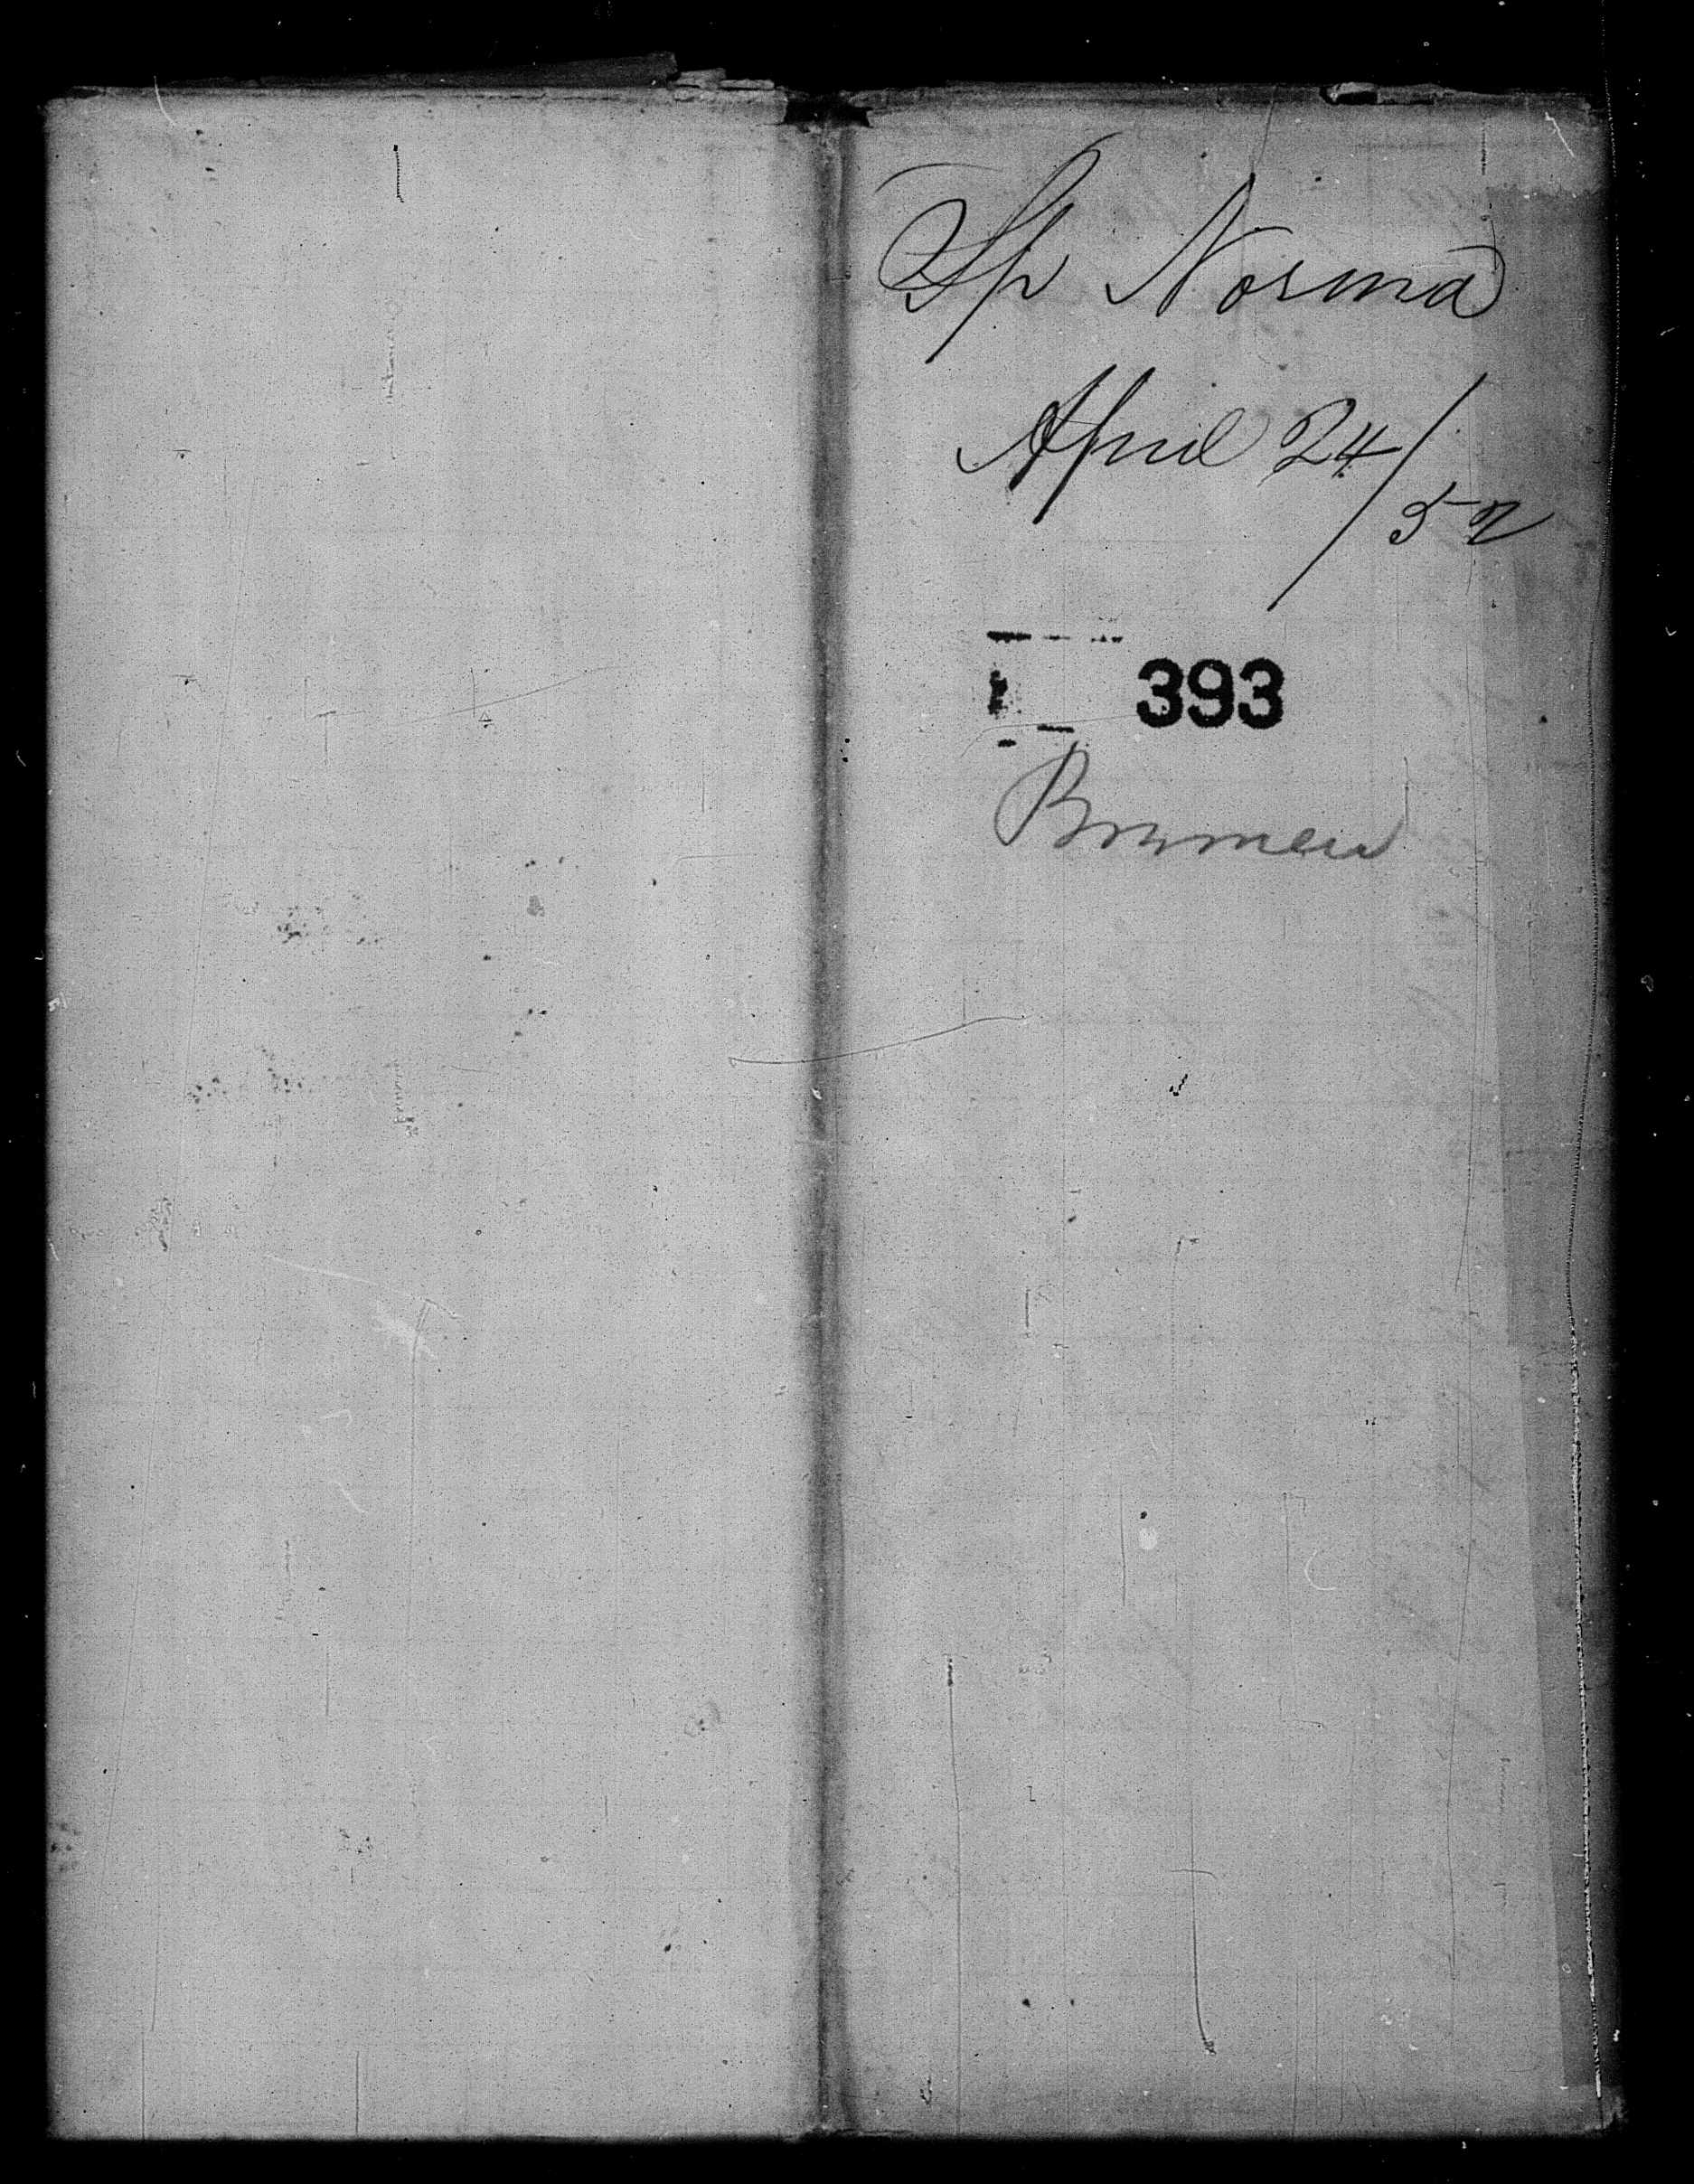 Sp Norma
April 24/52
393
Bremen